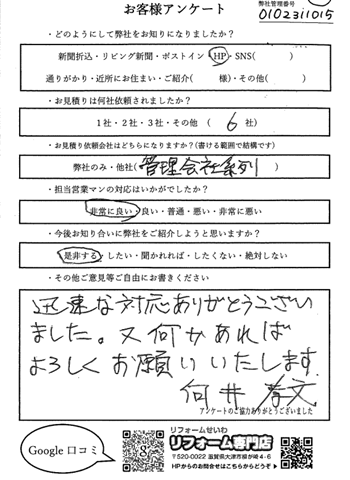 お客様アンケート
弊社管理番号
0102311015
・どのようにして弊社をお知りになりましたか？
新聞折込・リビング新聞・ポストイン・HP・SNS( )
通りがかり・近所にお住まい・ご紹介( 様)・その他( )
・お見積りは何社依頼されましたか？
1社・2社・3社・その他 ( 6 社)
・お見積り依頼会社はどちらになりますか？(書ける範囲で結構です)
弊社のみ・他社( 管理会社系列 )
・担当営業マンの対応はいかがでしたか？
非常に良い・良い・普通・悪い・非常に悪い
・今後お知り合いに弊社をご紹介しようと思いますか？
是非する・したい・聞かれれば・したくない・絶対しない
・その他ご意見等ご自由にお書きください
迅速な対応ありがとうござい
ました。又何かあれば
よろしくお願いいたします.
向井
アンケートのご協力ありがとうございました
Google口コミ
リフォームせいわ
リフォーム専門店
〒520-0022 滋賀県大津市柳が崎4-6
HPからのお問合せはこちらからどうぞ▶